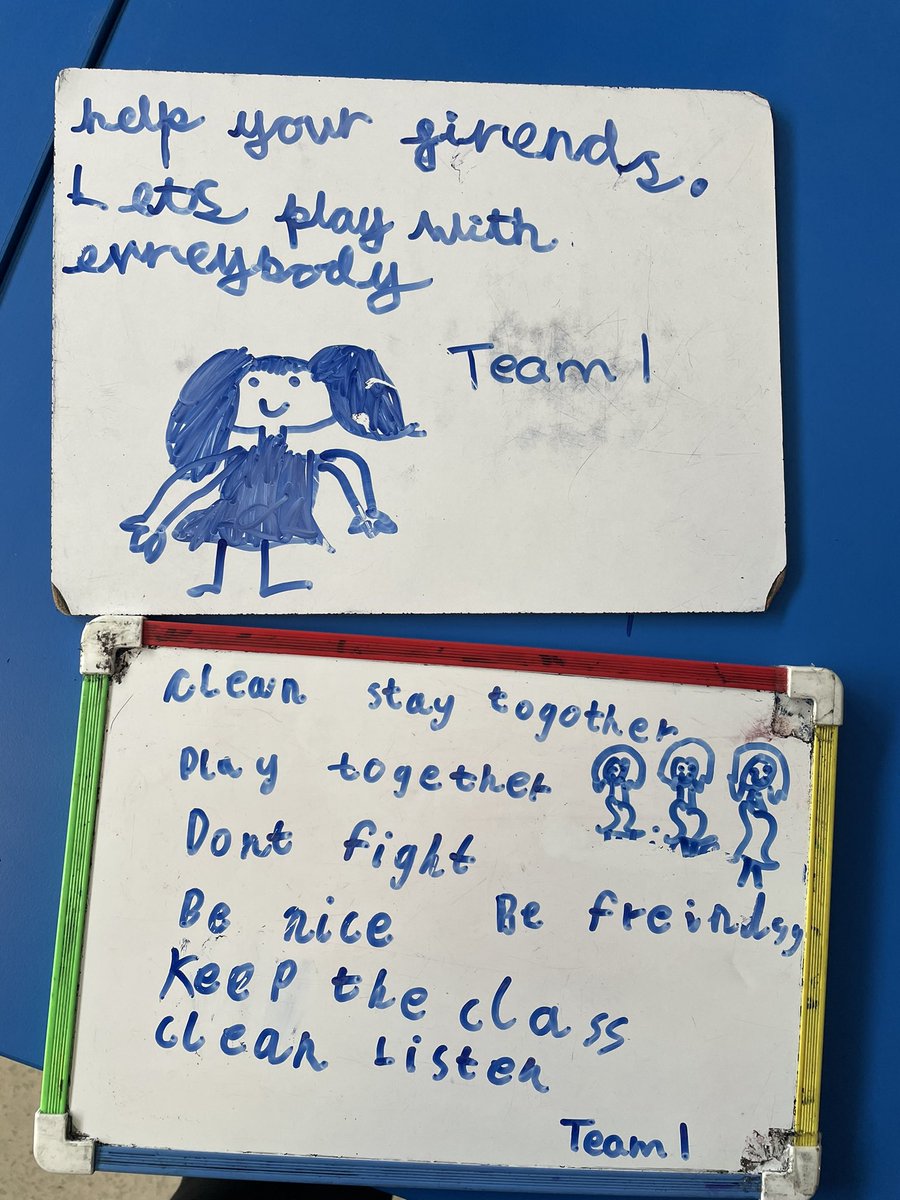 help your firends.
Lets play with
evreybody
Team 1
clean stay togother
Play together
Dont fight
Be nice Be freinds
Keep the class
clean Listen
Team 1